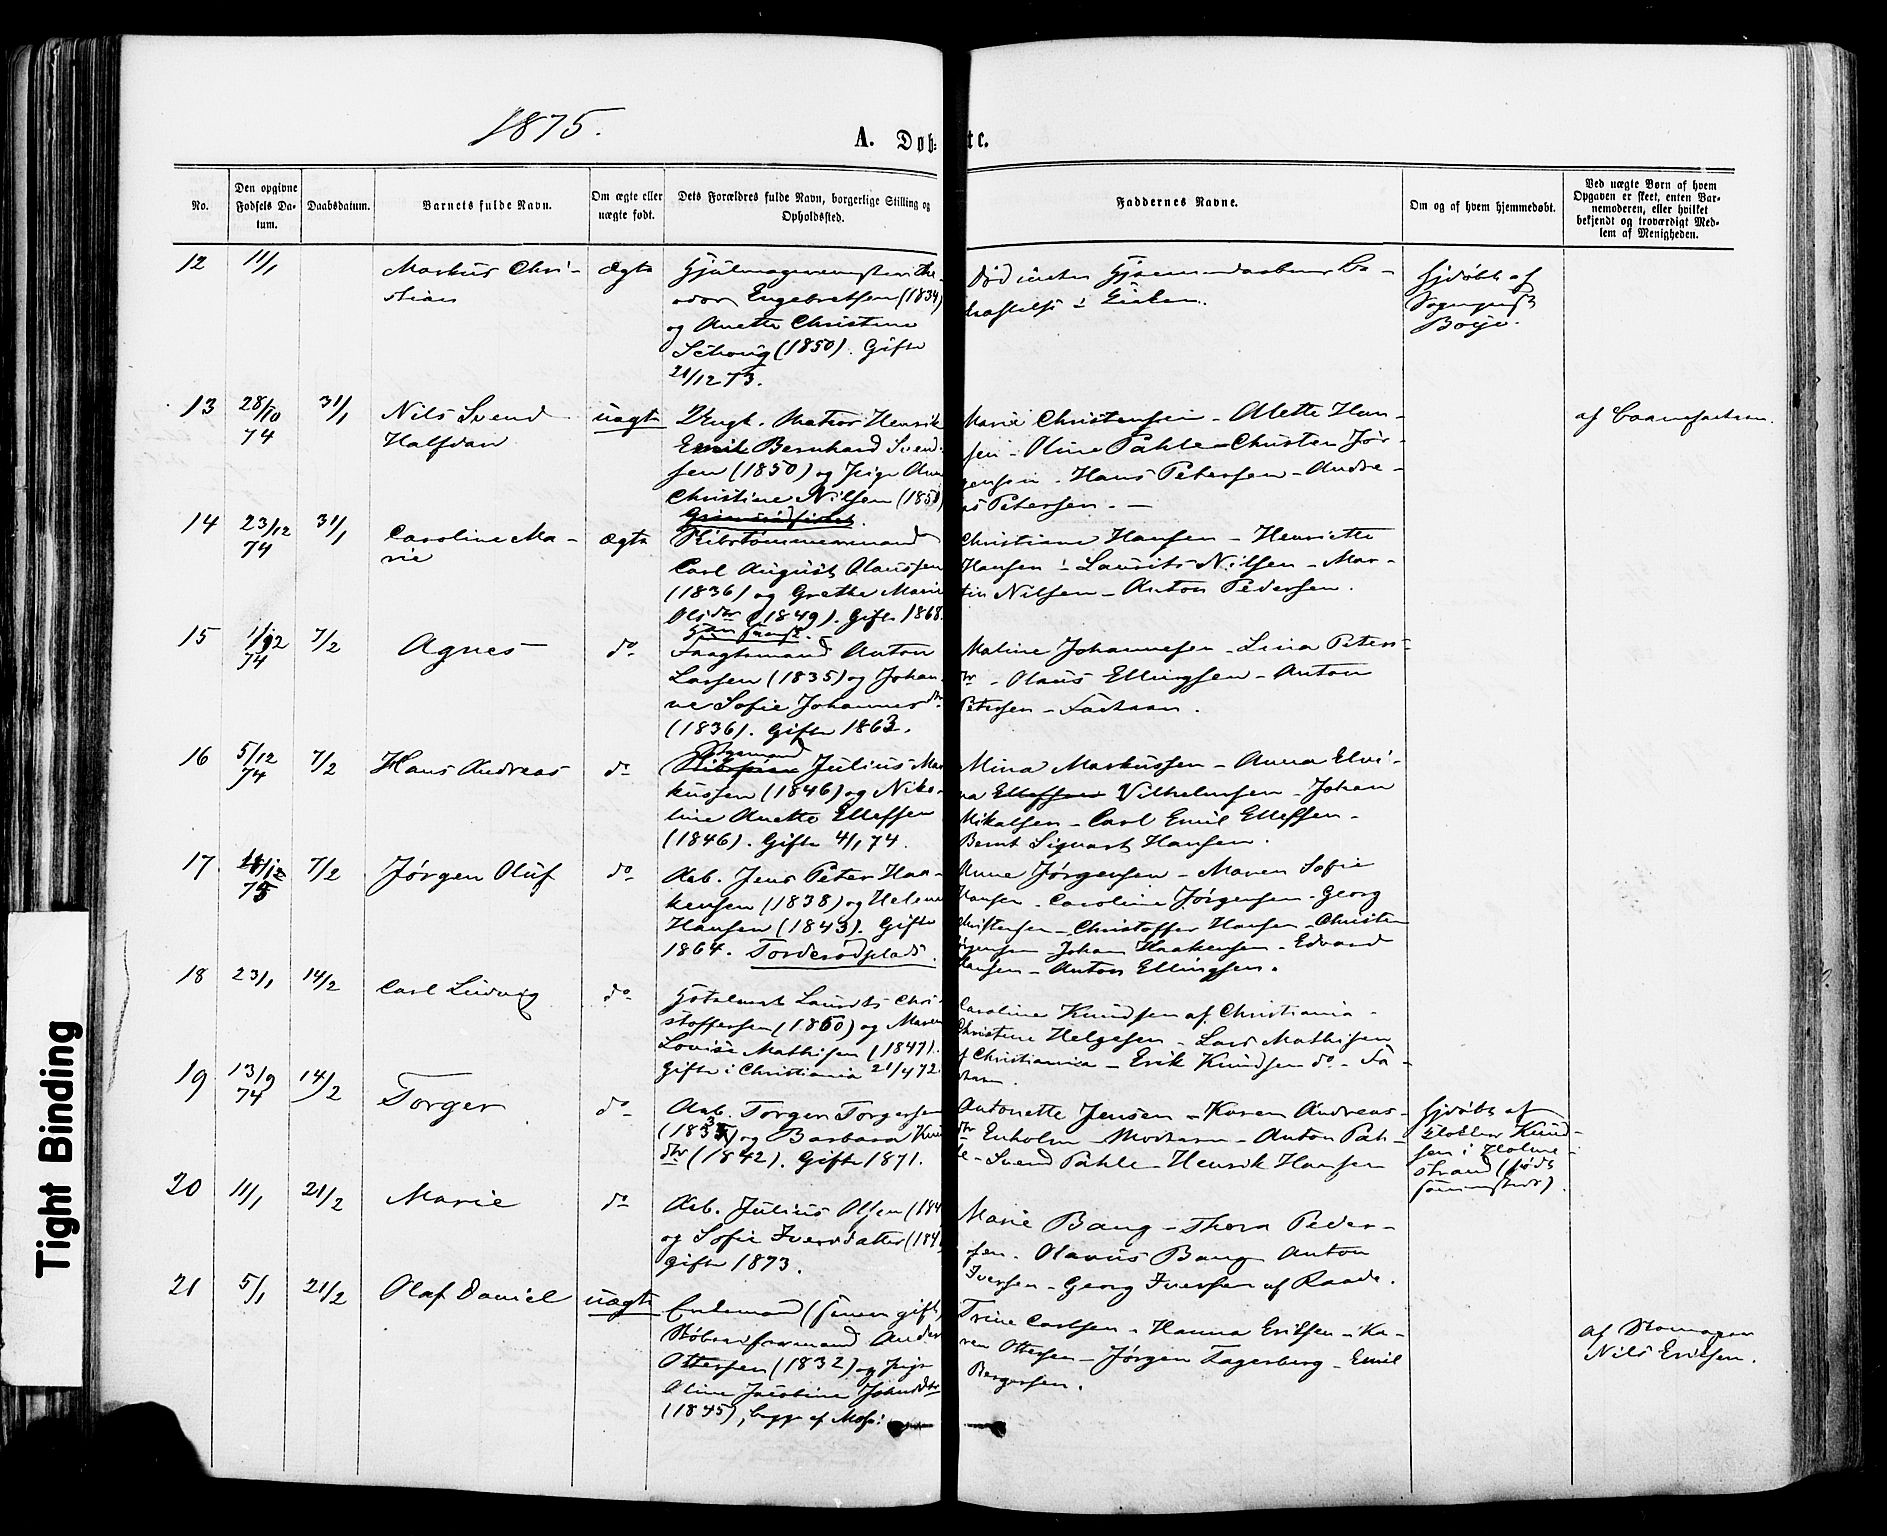 1875.
A. Døb-te c.
No.
Den opgivne Fødsels Datum.
Daabsdatum.
Barnets fulde Navn.
Om ægte eller uægte født.
Dets Forældres fulde Navn, borgerlige Stilling og Opholdssted.
Faddernes Navne.
Om og af hvem hjemmedøbt.
Ved uægte Børn af hvem Opgaven er skeet, enten Barnemoderen, eller hvilket bekjendt og troværdigt Medlem af Menigheden.
12 11/1
Markus Chri-
stian
ægte
odor Engebretsen (1834)
og Anette Christine
(1850). Gifte
21/12 73.
Død inden Hjemmedaabens Be-
kræftelse i Kirken.
Hjdøbt af
Sognepræst
13 28/10 74 31/1
Nils Svend
Halfdan
uægte
Ungk. Matros Henrik
Emil Bernhard Svend-
sen (1850) og Pige Anne
Christine Nilsen (1850)
Marie Christensen - Alette Han-
sen - Oline Pahle - Christen Jør-
gensen - Hans Petersen - Andre-
as Petersen. -
af Barnefaderen.
14 23/12 74 31/1
Caroline Ma-
rie
ægte
Flisetømmermand
Carl August Olaussen
(1836) og Grethe Marie
Olsdtr (1849). Gifte 1868.
Christiane Hansen - Henriette
Hansen - Laurits Nilsen - Mar-
tin Nilsen - Anton Pedersen.
15 1/12 74 7/2
Agnes
do
Fragtemand Anton
Larsen (1835) og Johan-
ne Sofie Johannesdtr
(1836). Gifte 1863.
Maline Johannesen - Lina Peters-
dtr - Olaus Ellingsen - Anton
Petersen - Faderen.
16 5/12 74 7/2
Hans Andreas
do
Julius Mar-
kussen (1846) og Niko-
line Anette Ellefsen
(1846). Gifte 4/1 74.
Mina Markussen - Anna Elvi-
na Ellefsen Vilhelmsen - Johan
Mikalsen - Carl Emil Ellefsen -
Bernt Sigvart Hansen.
17 18/12 75 7/2
Jørgen Oluf
do
Arb. Jens Peter Haa-
kensen (1838) og Helene
Hansen (1843). Gifte
1864. Torderødplads.
Anne Jørgensen - Maren Sofie
Hansen - Caroline Jørgensen - Georg
Christensen - Christoffer Hansen - Christen
Jørgensen Johan Haakensen - Edvard
Hansen - Anton Ellingsen.
18 23/1 14/2
Carl Ludvig
do
Laurits Chri-
stoffersen (1850) og Maren
Lovise Mathisen (1847).
Gifte i Christiania 21/4 72.
Caroline Knudsen af Christiania -
Christine Helgesen - Lars Mathisen
af Christiania - Erik Knudsen do - Fa-
deren.
19 13/9 74 14/2
Torger
do
Arb. Torger Torgersen
(1835) og Barbara Knu
dtr (1842). Gifte 1871.
Antonette Jensen - Karen Andreas-
dtr Enholm - Moderen - Anton Pah-
le - Svend Pahle - Henrik Hansen
Hjdøbt af
Klokker Knud-
sen i Holme-
strand (født
sammesteds).
20 11/1 21/2
Marie
do
Arb. Julius Olsen (184
og Sofie Iversdatter (184
gifte 1873.
Marie Bang - Thora Peder-
sen - Olavus Bang Anton
Iversen - Georg Iversen af Raade.
21 5/1 21/2
Olaf Daniel
uægte
Enkemand (senere gift)
Støberiformand Anders
Ottersen (1832) og Pige
Oline Jacobine Johnsdtr
(1845), begge af Moss.
Trine Carlsen - Hanna Eriksen - Ka-
ren Ottersen - Jørgen Fagerberg - Emil
Bergersen.
af Stemoderen
Nils Eriksen.
Tight Binding